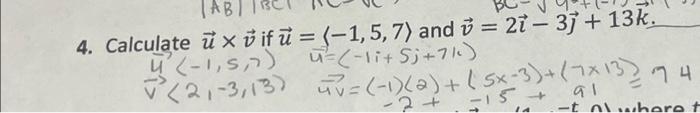 |AB| |BC|
4. Calculate u⃗ × v⃗ if u⃗ = ⟨−1, 5, 7⟩ and v⃗ = 2i⃗ − 3j⃗ + 13k⃗.
u⃗ ⟨-1,5,7) u⃗=(-1i+5j+7k)
v⃗ <2,-3,13) u⃗v⃗=(-1)(2)+(5x-3)+(7x13)=74
-2 + -15 + 91
where t